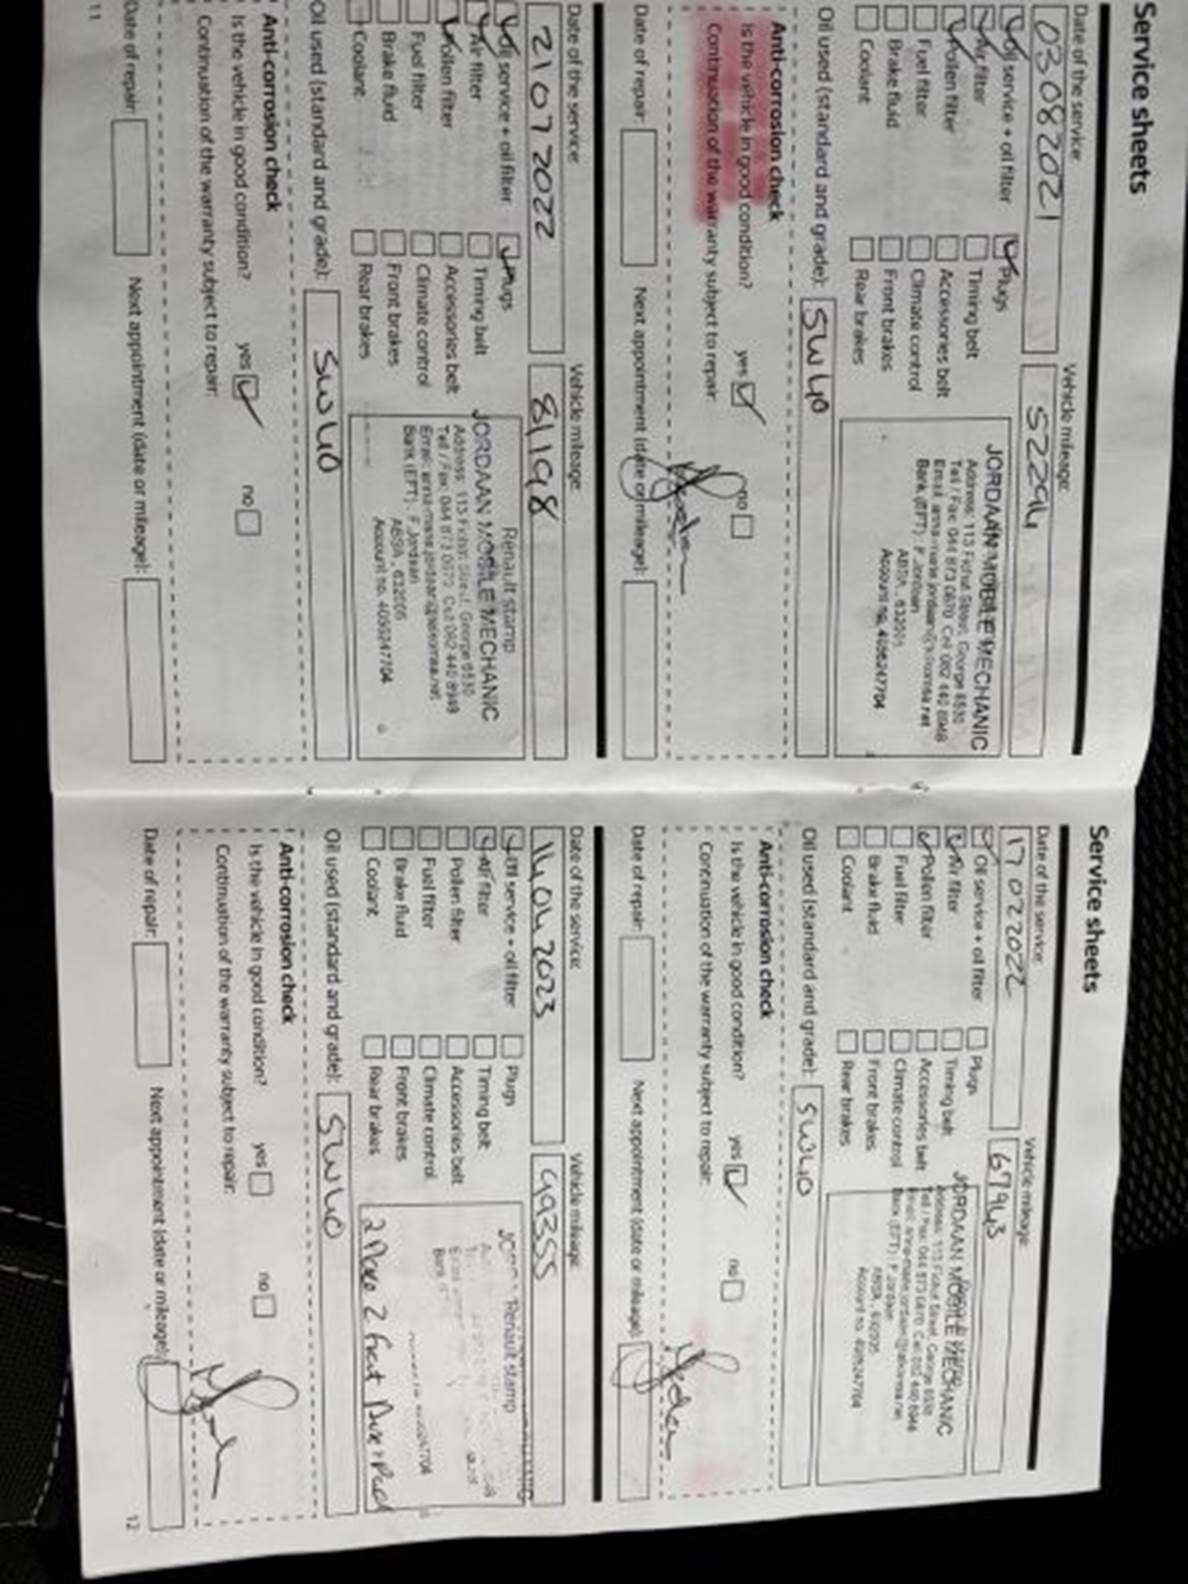 Service sheets
Date of the service:
Vehicle mileage:
03082021
52294
Oil service + oil filter
Plugs
Air filter
Timing belt
Pollen filter
Accessories belt
Fuel filter
Climate control
Brake fluid
Front brakes
Coolant
Rear brakes
JORDAAN MOBILE MECHANIC
Address: 113 Fichat Street, George 6530
Tell / Fax: 044 873 0670
Bank (EFT) : F Jordaan
ABSA , 632005
Account no. 4055247704
Oil used (standard and grade):
5W40
Anti-corrosion check
Is the vehicle in good condition?
yes
no
Continuation of the warranty subject to repair:
Date of repair:
Next appointment (date or mileage):
Date of the service:
Vehicle mileage:
21072022
81198
Oil service + oil filter
Plugs
Air filter
Timing belt
Pollen filter
Accessories belt
Fuel filter
Climate control
Brake fluid
Front brakes
Coolant
Rear brakes
Renault stamp
JORDAAN MOBILE MECHANIC
Address: 113 Fichat Street, George 6530
Tell / Fax: 044 873 0670
Bank (EFT) : F Jordaan
ABSA , 632005
Account no. 4055247704
Oil used (standard and grade):
5W40
Anti-corrosion check
Is the vehicle in good condition?
yes
no
Continuation of the warranty subject to repair:
Date of repair:
Next appointment (date or mileage):
11
Service sheets
Date of the service:
Vehicle mileage:
17022022
67943
Oil service + oil filter
Plugs
Air filter
Timing belt
Pollen filter
Accessories belt
Fuel filter
Climate control
Brake fluid
Front brakes
Coolant
Rear brakes
JORDAAN MOBILE MECHANIC
Address: 113 Fichat Street, George 6530
Tell / Fax: 044 873 0670
Bank (EFT) : F Jordaan
ABSA , 632005
Account no. 4055247704
Oil used (standard and grade):
5W40
Anti-corrosion check
Is the vehicle in good condition?
yes
no
Continuation of the warranty subject to repair:
Date of repair:
Next appointment (date or mileage):
Date of the service:
Vehicle mileage:
14042023
99355
Oil service + oil filter
Plugs
Air filter
Timing belt
Pollen filter
Accessories belt
Fuel filter
Climate control
Brake fluid
Front brakes
Coolant
Rear brakes
Renault stamp
Oil used (standard and grade):
5W40
Anti-corrosion check
Is the vehicle in good condition?
yes
no
Continuation of the warranty subject to repair:
Date of repair:
Next appointment (date or mileage):
12